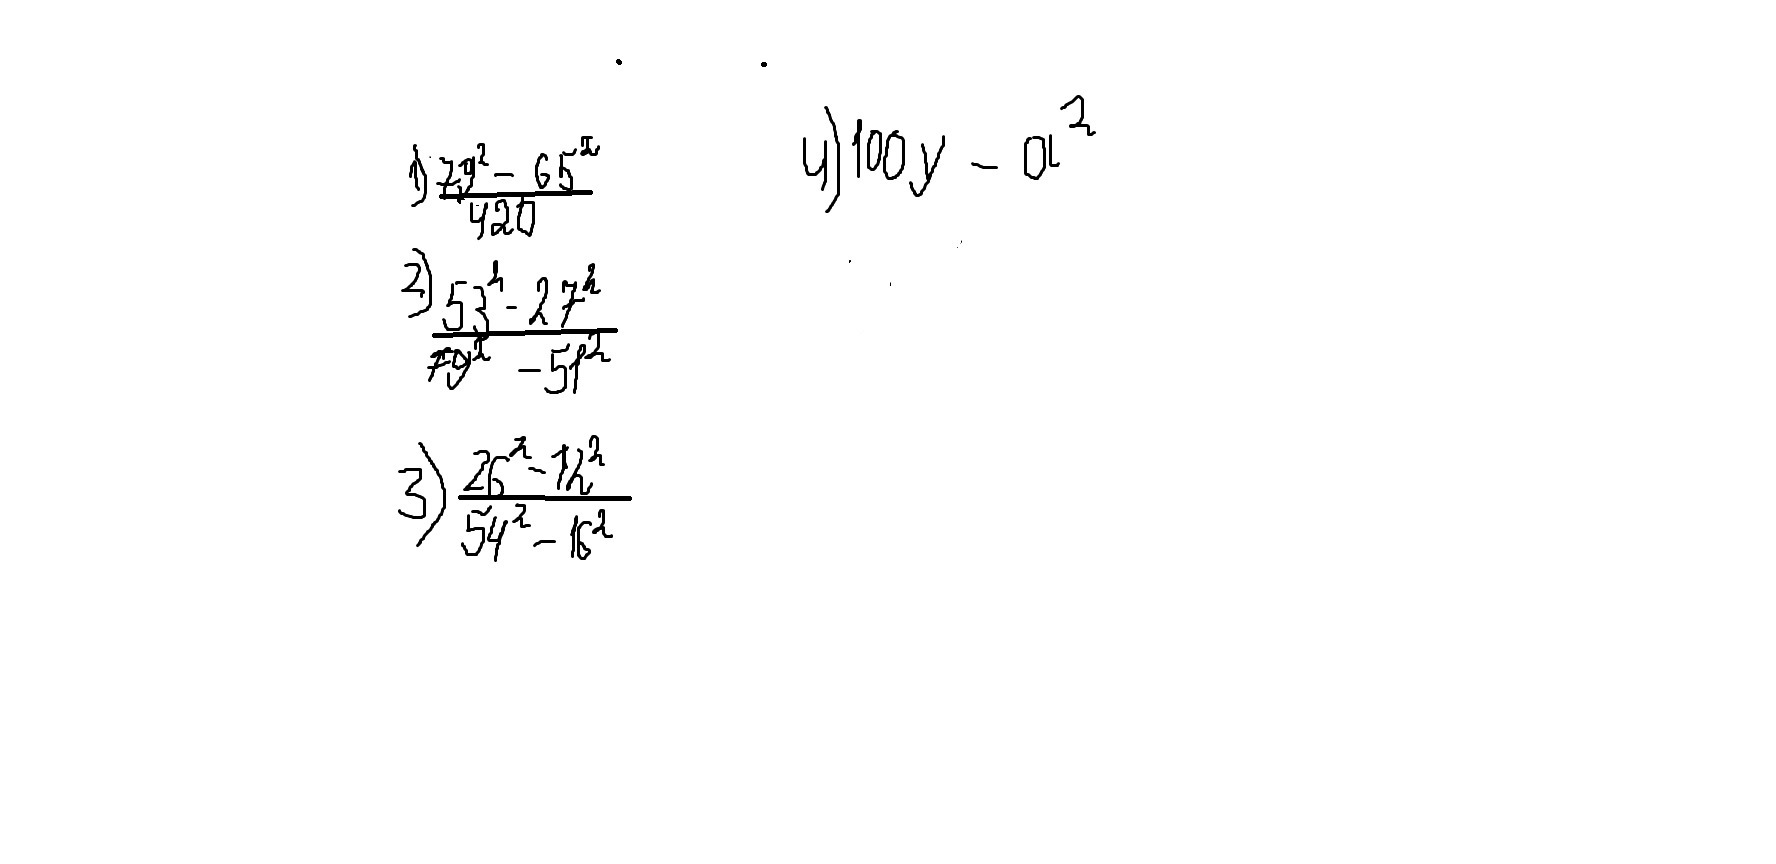 1) 79² - 65²
420
2) 53² - 27²
79² - 51²
3) 26² - 12²
54² - 16²
4) 100y - a²